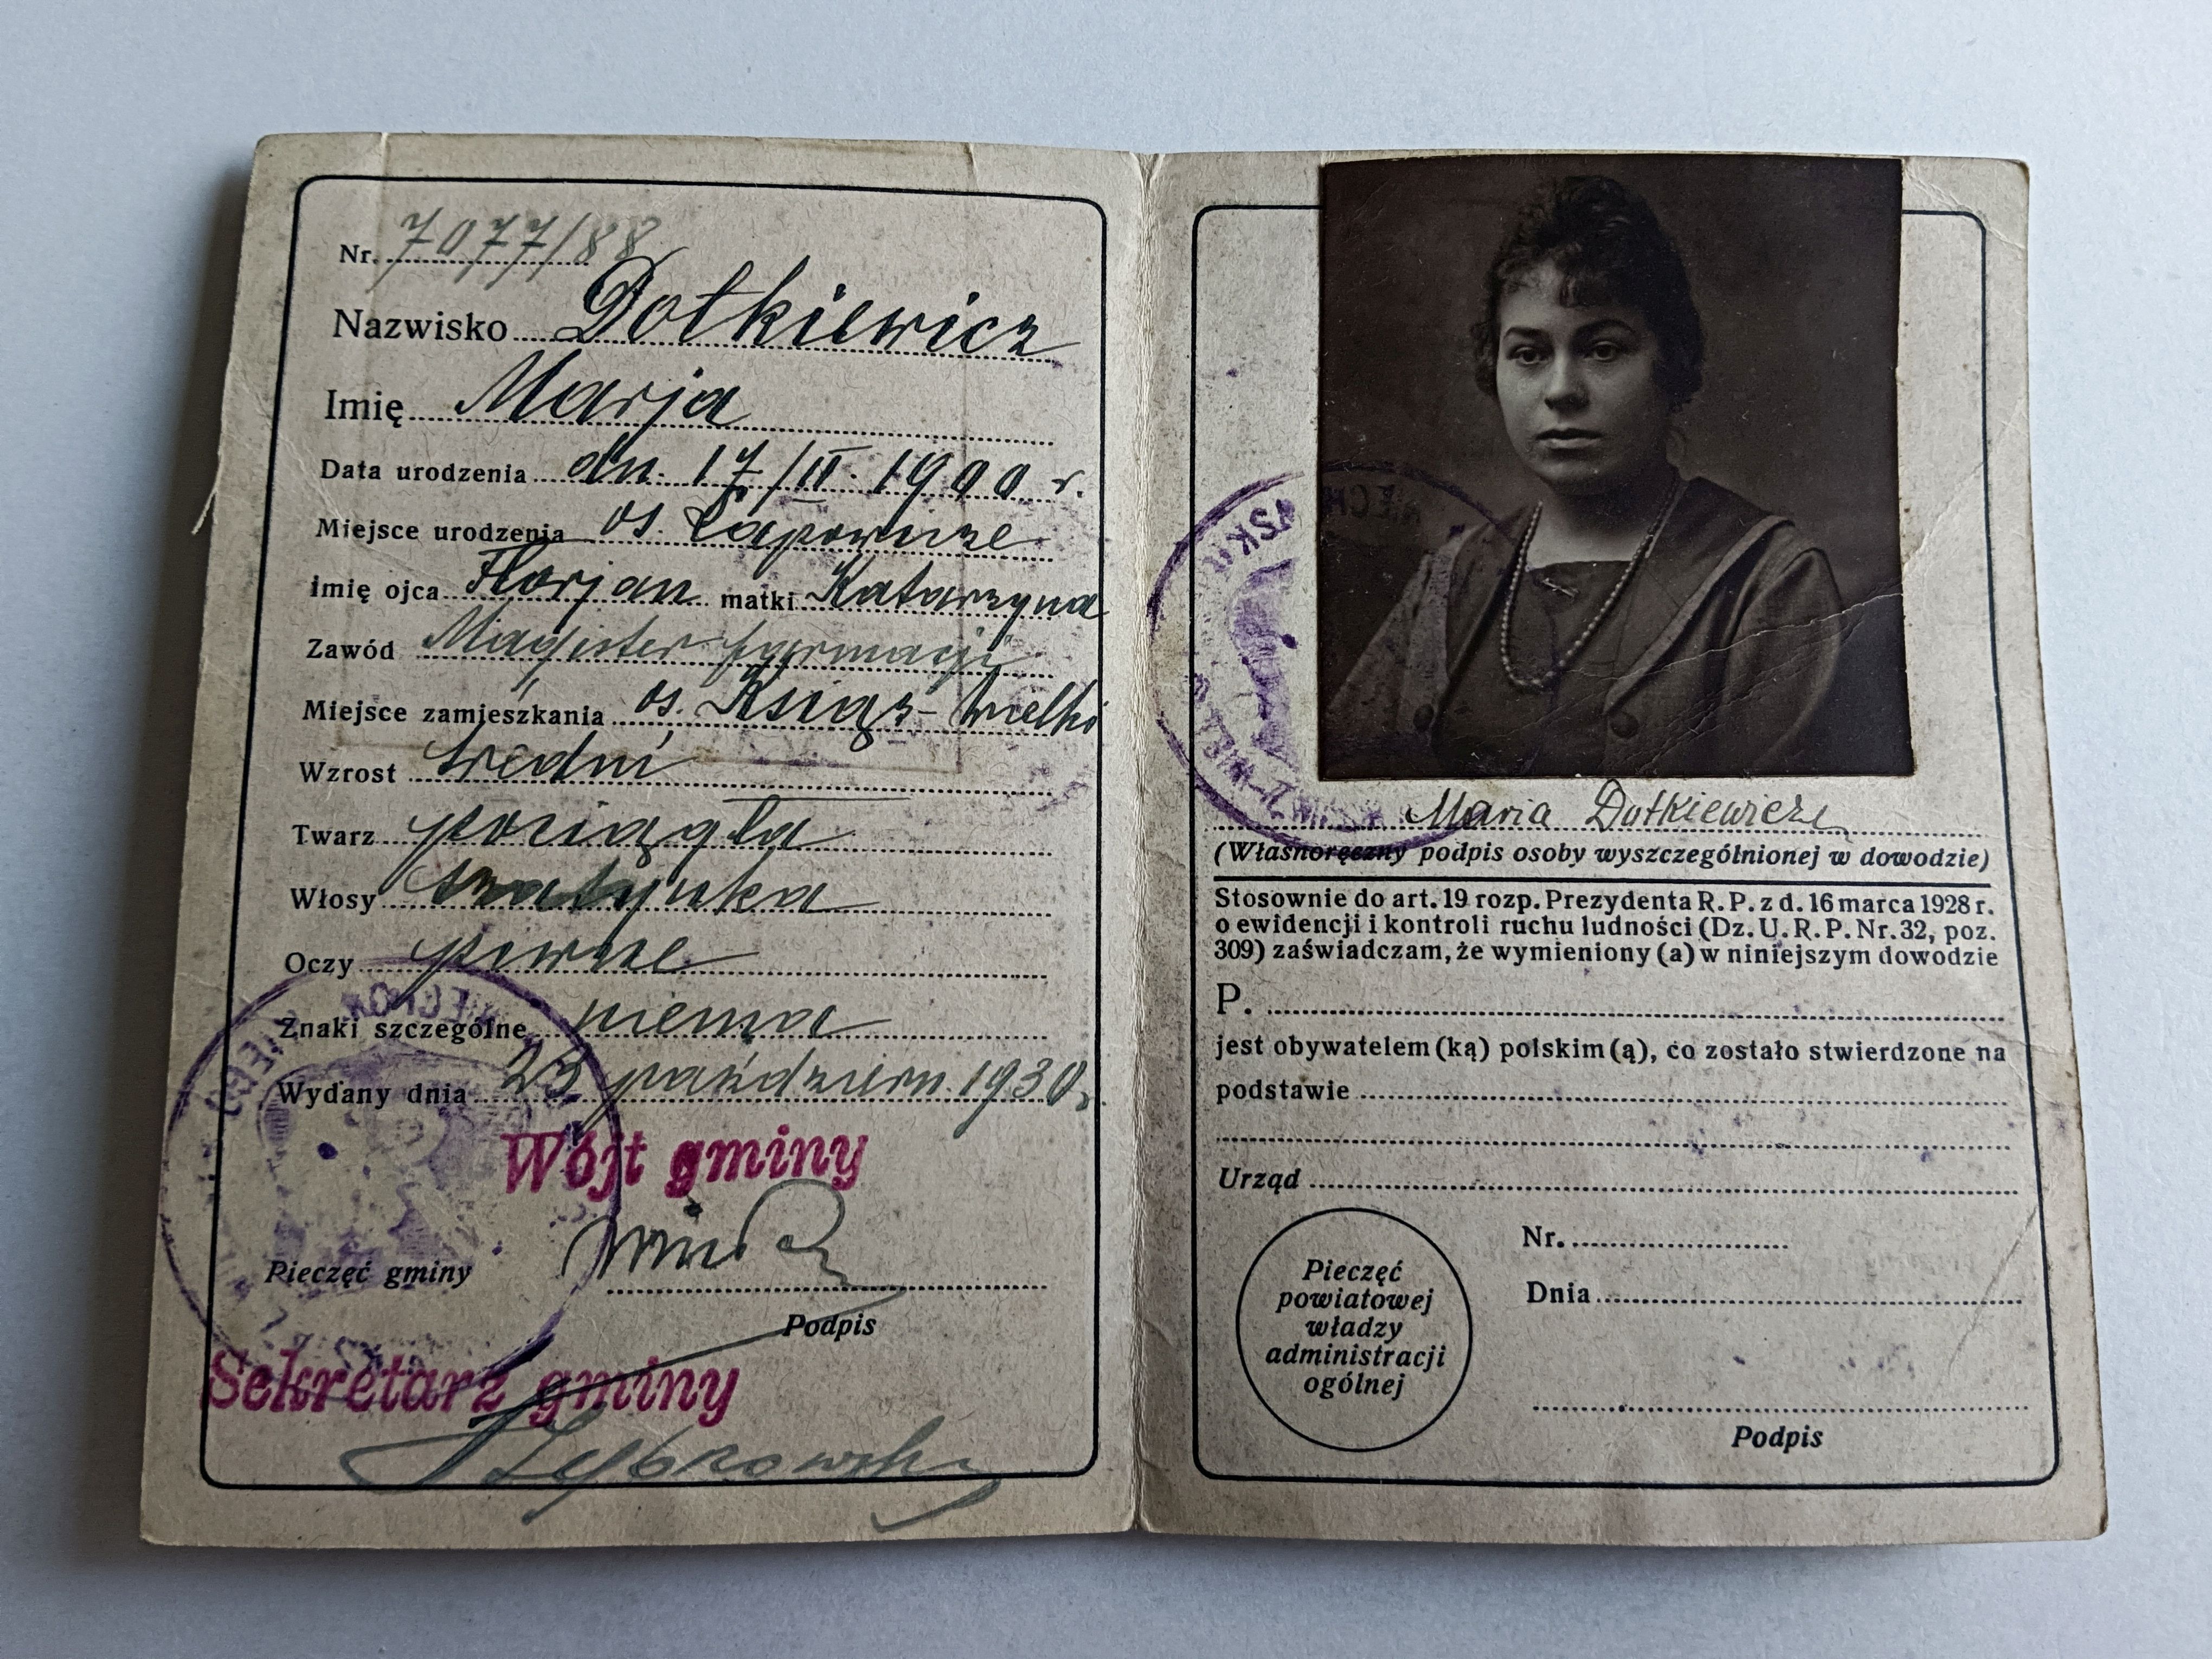 Nr. 7077/88
Nazwisko Dotkiewicz
Imię Marja
Data urodzenia dn. 17/II. 1900 r.
Miejsce urodzenia os.
Imię ojca Florjan matki Katarzyna
Zawód Magister farmacji
Miejsce zamieszkania os. Książ-Wielki
Wzrost średni
Twarz pociągła
Włosy szatynka
Oczy piwne
Znaki szczególne niema
Wydany dnia 23 październ. 1930 r.
Wójt gminy
Pieczęć gminy
Podpis
Sekretarz gminy
Maria Dotkiewicz
(Własnoręczny podpis osoby wyszczególnionej w dowodzie)
Stosownie do art. 19 rozp. Prezydenta R. P. z d. 16 marca 1928 r.
o ewidencji i kontroli ruchu ludności (Dz. U. R. P. Nr. 32, poz.
309) zaświadczam, że wymieniony (a) w niniejszym dowodzie
P.
jest obywatelem (ką) polskim (ą), co zostało stwierdzone na
podstawie
Urząd
Nr.
Dnia
Pieczęć
powiatowej
władzy
administracji
ogólnej
Podpis